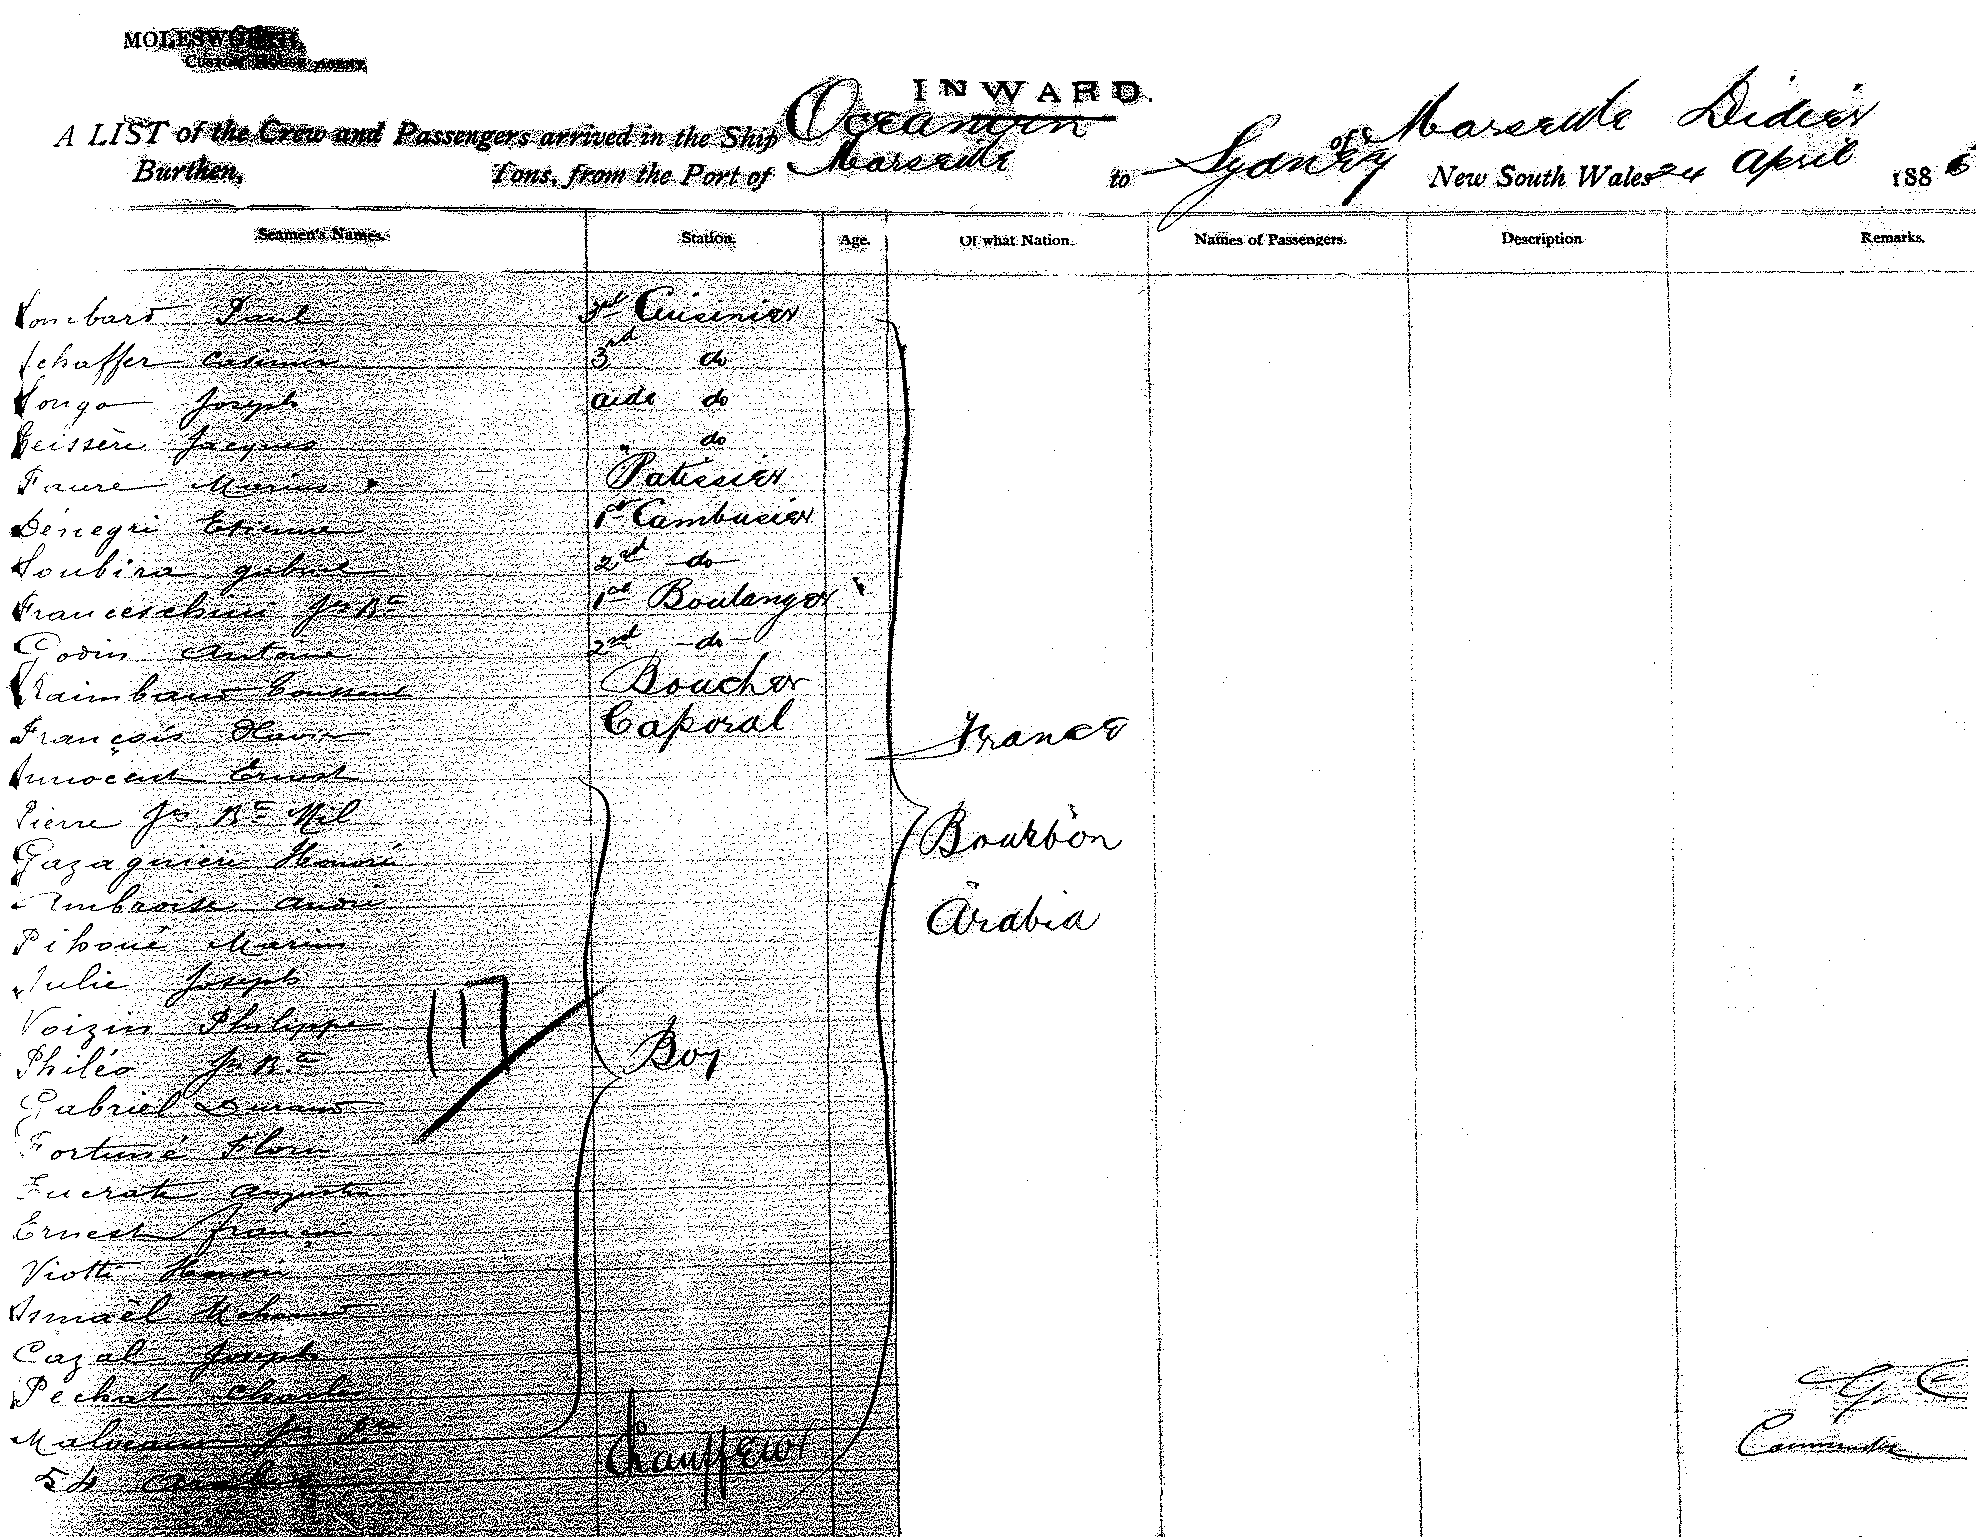 MOLESWORTH,
CUSTOM HOUSE AGENT
INWARD.
A LIST of the Crew and Passengers arrived in the Ship Oceanien of Marseille Didier
Burthen, Tons, from the Port of Marseille to Sydney New South Wales 24 April 1886
Seamen's Names. Station. Age. Of what Nation. Names of Passengers. Description Remarks.
Lombard Paul 3rd Cuisinier
Schaffer Casimir 3rd do
Longo Joseph aide do
Geissère Jacques " do
Faure Marius Patissier
Dénegri Etienne 1er Cambusier
Soubira gabriel 2nd do
Franceschini Jn Bte 1er Boulanger
Godin Antoine 2nd do
Raimbaud Boucher
François Caporal
France
Innocent Ernest
Pierre Jn Bte Mil
Bourbon
Gazagnieu Honoré
Ambroise André
Arabia
Pihoué Marius
Julie Joseph
Voizin Philippe
(17
Philéo Jn Bte
Boy
Gabriel Durand
Fortuné Flour
Lucrate Auguste
Ernest françois
Viotti Honoré
Ismaël Mohamed
Cazal Joseph
Pechat Charles
G. C
Jn Bte
Commander
54 Arabes Chauffeurs